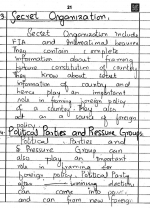 21
3 Secret Organization.
Secret Organization include
FIA and International bureau
They contain complete
information about framing
future constitution of country
They know about what
information of country and
hence play an important
role in framing foreign policy
of a country. They can
act as a source of foreign
policy.
Political Parties and Pressure Groups
Political Parties and
Pressure Group can
also play an important
role in framing the
foreign policy. Political Party
after winning election
can come into power
and can form new foreign